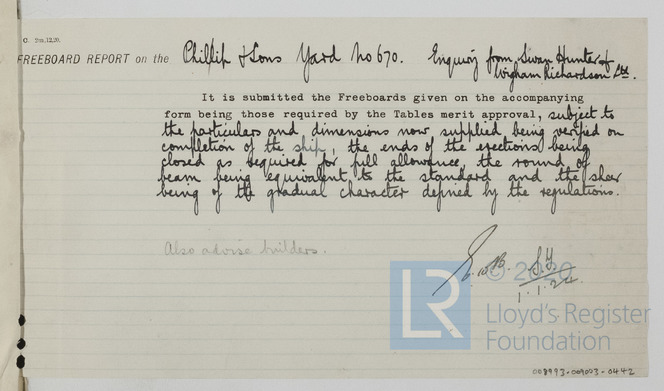 C. 2m.12,20.
FREEBOARD REPORT on the Phillip & Sons Yard No 670. Enquiry from Swan Hunter &
Wigham Richardson Ltd.
It is submitted the Freeboards given on the accompanying
form being those required by the Tables merit approval, subject to
the particulars and dimensions now supplied being verified on
completion of the ship, the ends of the erections being
closed as required for full allowance, the round of
beam being equivalent to the standard and the sheer
being of the gradual character defined by the regulations.
Also advise builders.
1.1.24
© 2020
LR
Lloyd's Register
Foundation
008993-009003-0442